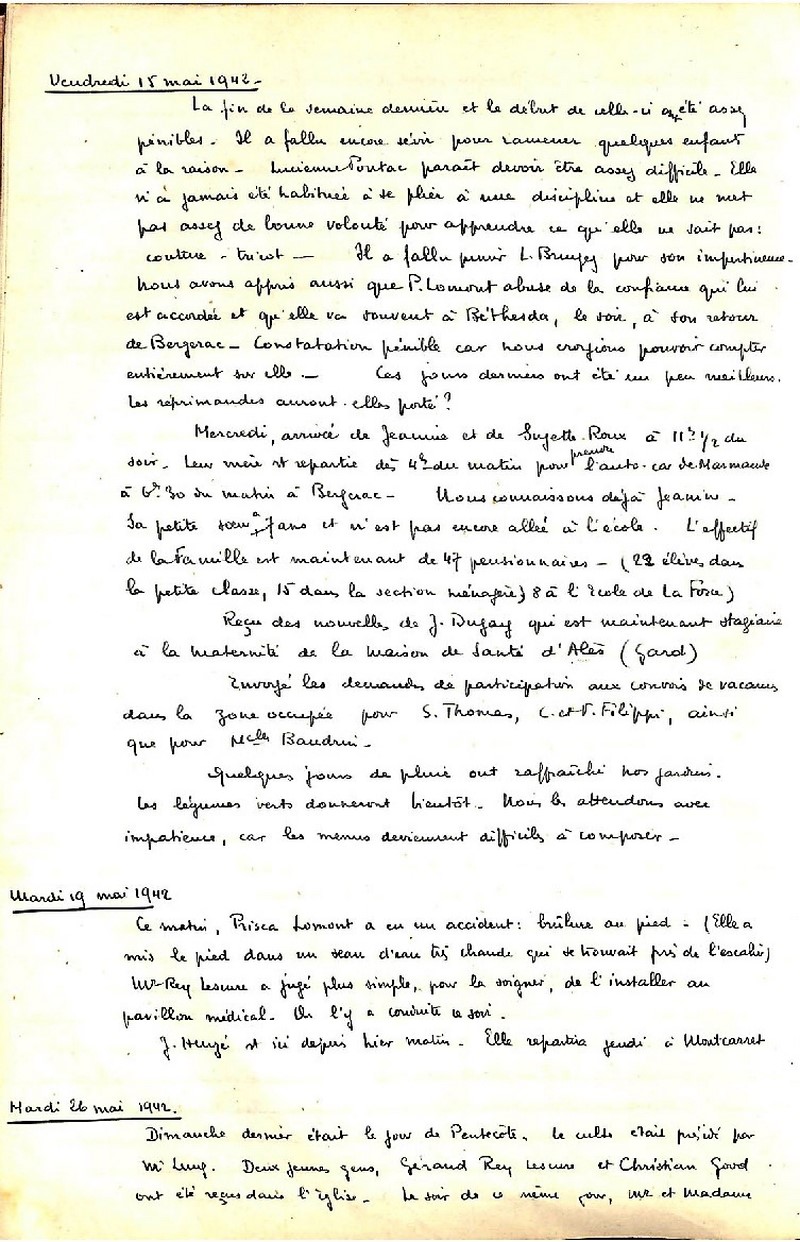 Vendredi 15 mai 1942 -
La fin de la semaine dernière et le début de celle-ci ont été assez
pénibles - Il a fallu encore sévir pour ramener quelques enfants
à la raison - Lucienne Pontac paraît devoir être assez difficile - Elle
n'a jamais été habituée à se plier à une discipline et elle ne met
pas assez de bonne volonté pour apprendre ce qu'elle ne sait pas:
couture - tricot — Il a fallu punir L. Brugey pour son impertinence -
Nous avons appris aussi que P. Lomont abuse de la confiance qui lui
est accordée et qu'elle va souvent à Béthesda, le soir, à son retour
de Bergerac - Constatation pénible car nous croyions pouvoir compter
entièrement sur elle. — Ces jours derniers ont été un peu meilleurs.
Les réprimandes auront-elles porté ?
Mercredi, arrivée de Jeanine et de Suzette Roux à 11h 1/2 du
soir - Leur mère est repartie dès 4h du matin pour prendre l'auto-car de Marmande
à 6h 30 du matin à Bergerac - Nous connaissons déjà Jeanine -
Sa petite soeur a 7 ans et n'est pas encore allée à l'école. L'effectif
de la Famille est maintenant de 47 pensionnaires - (22 élèves dans
la petite classe, 15 dans la section ménagère) 8 à l'Ecole de La Force)
Reçu des nouvelles de J. Dugay qui est maintenant stagiaire
à la maternité de la Maison de Santé d'Alès (Gard)
Envoyé les demandes de participation aux convois de vacances
dans la zone occupée pour S. Thomas, C. et V. Filippi, ainsi
que pour Melles Baudrin -
Quelques jours de pluie ont raffraîchi nos jardins.
Les légumes verts donneront bientôt - Nous les attendons avec
impatience, car les menus deviennent difficiles à composer -
Mardi 19 mai 1942
Ce matin, Prisca Lomont a eu un accident: brûlure au pied - (Elle a
mis le pied dans un seau d'eau très chaude qui se trouvait près de l'escalier)
Mr Rey Lescure a jugé plus simple, pour la soigner, de l'installer au
pavillon médical. On l'y a conduite ce soir.
J. est ici depuis hier matin - Elle repartira jeudi à Montcarret
Mardi 26 mai 1942.
Dimanche dernier était le jour de Pentecôte. Le culte était présidé par
Mr Lung. Deux jeunes gens, Géraud Rey Lescure et Christian Good
ont été reçus dans l'Eglise - Le soir de ce même jour, Mr et Madame